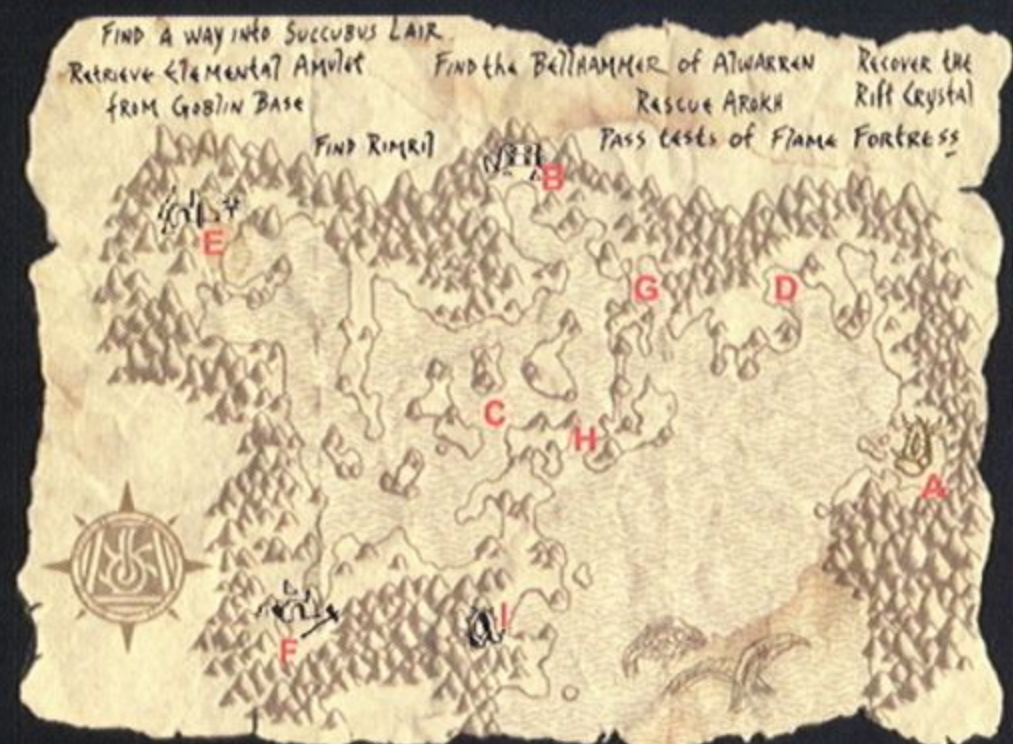 FIND A WAY INTO SUCCUBUS LAIR
RETRIEVE ELEMENTAL AMULET
FROM GOBLIN BASE
FIND RIMRIL
FIND the BELLHAMMER of ALWARREN
RESCUE AROKH
PASS tests of FLAME FORTRESS
RECOVER the
Rift CRYSTAL
B
E
G
D
C
H
A
I
F